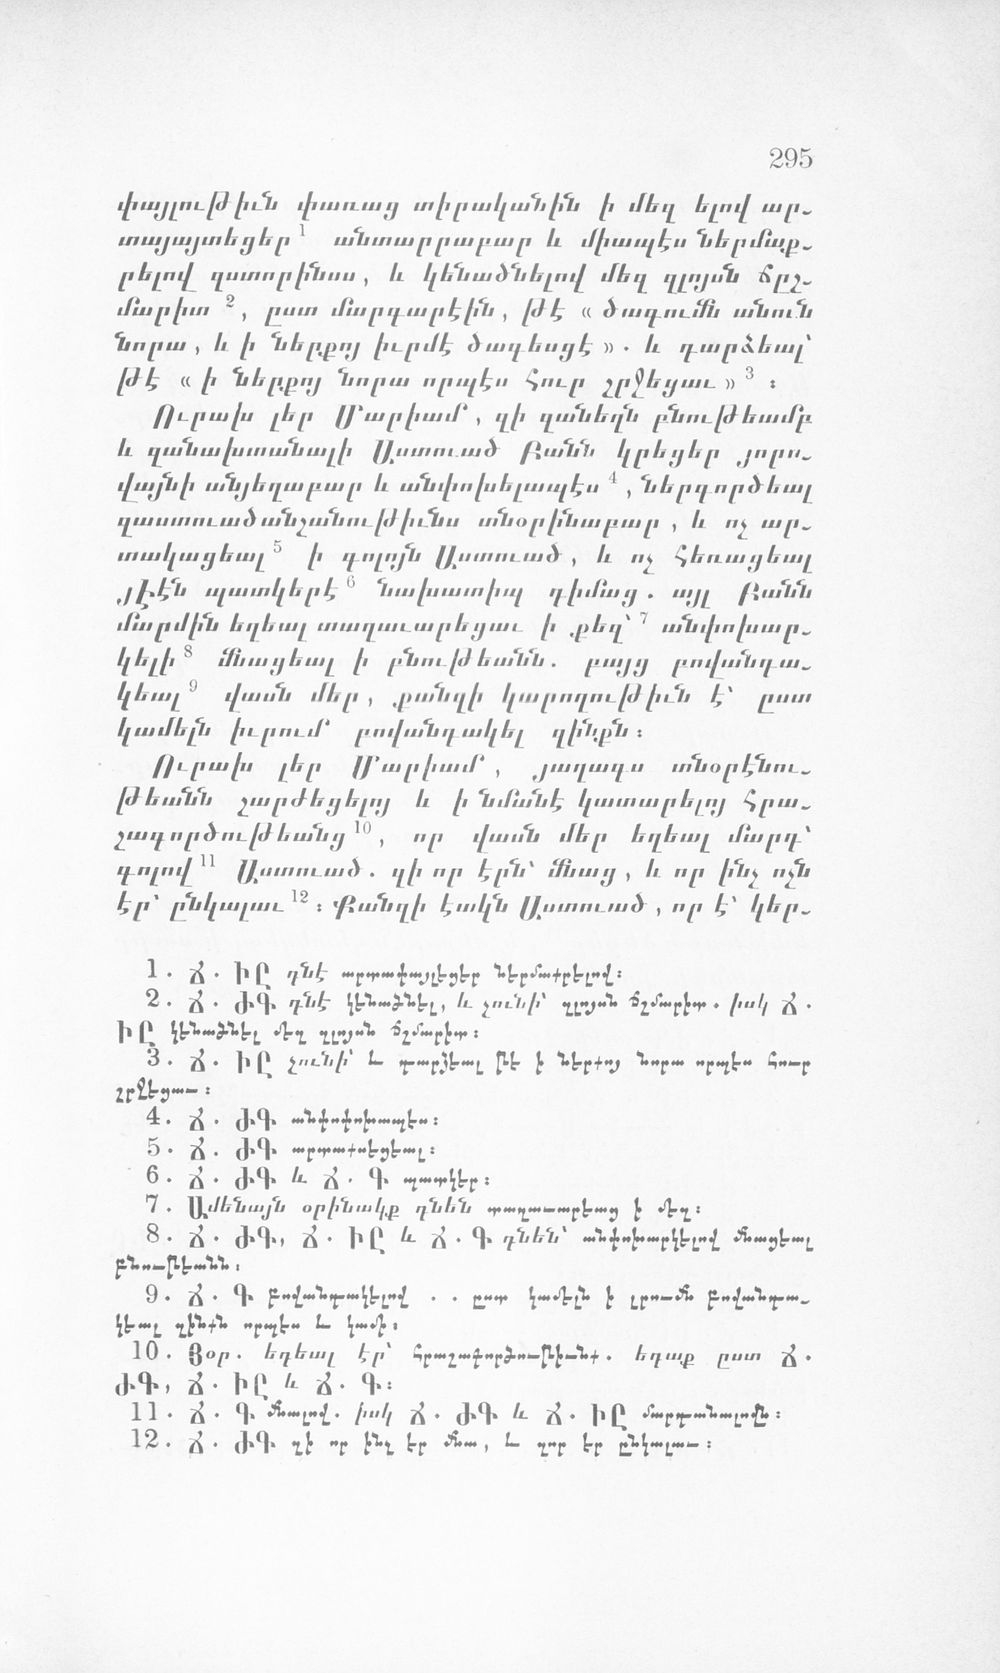 295
փայլութիւն փառաց տիրականին ի մեզ ելով ար-
տայայտեցեր 1 անտարրաբար և միապէս ներմաք-
րելով զստորինսս, և կենածնելով մեզ զլոյսն ճըշ-
մարիտ 2, ըստ մարգարէին, թէ « ծագումն անուն
նորա, և ի ներքոյ իւրմէ ծագեսցէ » . և դարձեալ՝
թէ « ի ներքոյ նորա որպէս հուր շրջեցաւ » 3 :
Ուրախ լեր Մարիամ, զի զանեղն բնութեամբ
և զանախտանալի Աստուած Բանն կրեցեր յորո-
վայնի անյեղաբար և անփոխելապէս 4, ներգործեալ
զաստուածանշանութիւնս տնօրինաբար, և ոչ ար-
տակացեալ 5 ի գոլոյն Աստուած, և ոչ հեռացեալ
յԻէն պատկերէ 6 նախատիպ դիմաց. այլ Բանն
մարմին եղեալ տաղաւարեցաւ ի քեզ՝ 7 անփոխար-
կելի 8 մնացեալ ի բնութեանն. բայց բովանդա-
կեալ 9 վասն մեր, քանզի կարողութիւն է՝ ըստ
կամելն իւրում բովանդակել զինքն :
Ուրախ լեր Մարիամ, յաղագս տնօրէնու-
թեանն շարժեցելոյ և ի նմանէ կատարելոյ հրա-
շագործութեանց 10, որ վասն մեր եղեալ մարդ՝
գոլով 11 Աստուած. զի որ էրն՝ մնաց, և որ ինչ ոչն
էր՝ ընկալաւ 12 : Քանզի էակն Աստուած, որ է՝ կեր-
1. Ճ. ԻԸ դնէ արտափայլեցեր ներմաքրելով :
2. Ճ. ԺԳ դնէ կենաձնել, և չունի՝ զլոյսն ճշմարիտ. իսկ Ճ.
ԻԸ կենաձնել մեզ զլոյսն ճշմարիտ :
3. Ճ. ԻԸ չունի՝ և դարձեալ թէ ի ներքոյ նորա որպէս հուր
շրջեցաւ :
4. Ճ. ԺԳ անփոփոխապէս :
5. Ճ. ԺԳ արտաքսեցեալ :
6. Ճ. ԺԳ և Ճ. Գ պատկեր :
7. Ամենայն օրինակք դնեն տաղաւարեաց ի մեզ :
8. Ճ. ԺԳ, Ճ. ԻԸ և Ճ. Գ դնեն՝ անփոխարկելով մնացեալ
բնութեանն :
9. Ճ. Գ բովանդակելով . . ըստ կամելն ի լրումն բովանդա-
կեալ զինքն որպէս և կամի :
10. Յօր. եդեալ էր՝ հրաշագործութիւնք. եդաք ըստ Ճ.
ԺԳ, Ճ. ԻԸ և Ճ. Գ :
11. Ճ. Գ մնալով. իսկ Ճ. ԺԳ և Ճ. ԻԸ մարդանալովն :
12. Ճ. ԺԳ զի որ ինչ էր մնա, և զոր էր ընկալաւ :